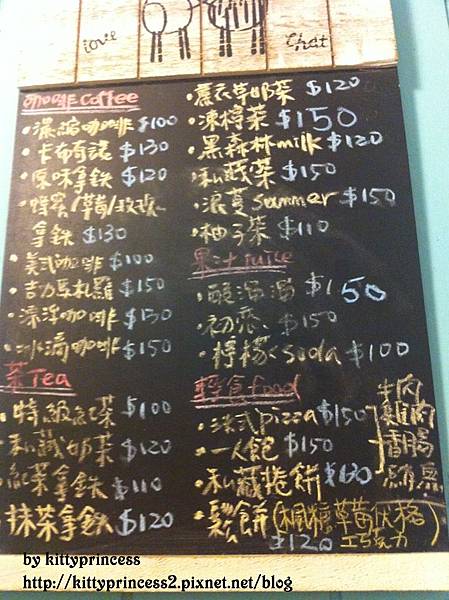 love
Chat
咖啡 Coffee
・濃縮咖啡 $100
・卡布奇諾 $130
・原味拿鐵 $120
・蜂蜜/草莓/玫瑰
拿鐵 $130
・美式咖啡 $100
・吉力馬札羅 $150
・漂浮咖啡 $130
・冰滴咖啡 $150
茶 Tea
・特級紅茶 $100
・私藏奶茶 $120
紅茶拿鐵 $110
・抹茶拿鐵 $120
・薰衣草奶茶 $120
・凍檸茶 $150
・黑森林milk $120
・私藏茶 $150
・浪蔓summer $150
・柚子茶 $110
果汁 juice
・酸溜溜 $150
・初戀 $150
・檸檬soda $100
輕食food
・法式pizza $150
牛肉
雞肉
香腸
・一人飽 $150
・私藏捲餅 $130
・鬆餅(楓糖草莓優格
$120 巧克力
by kittyprincess
http://kittyprincess2.pixnet.net/blog